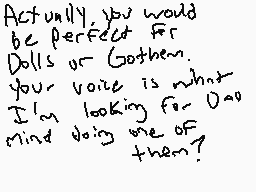 Actually, you would
be perfect for
Dolls or Gothem.
your voice is what
I'm looking for 0ao
mind doing one of
them?